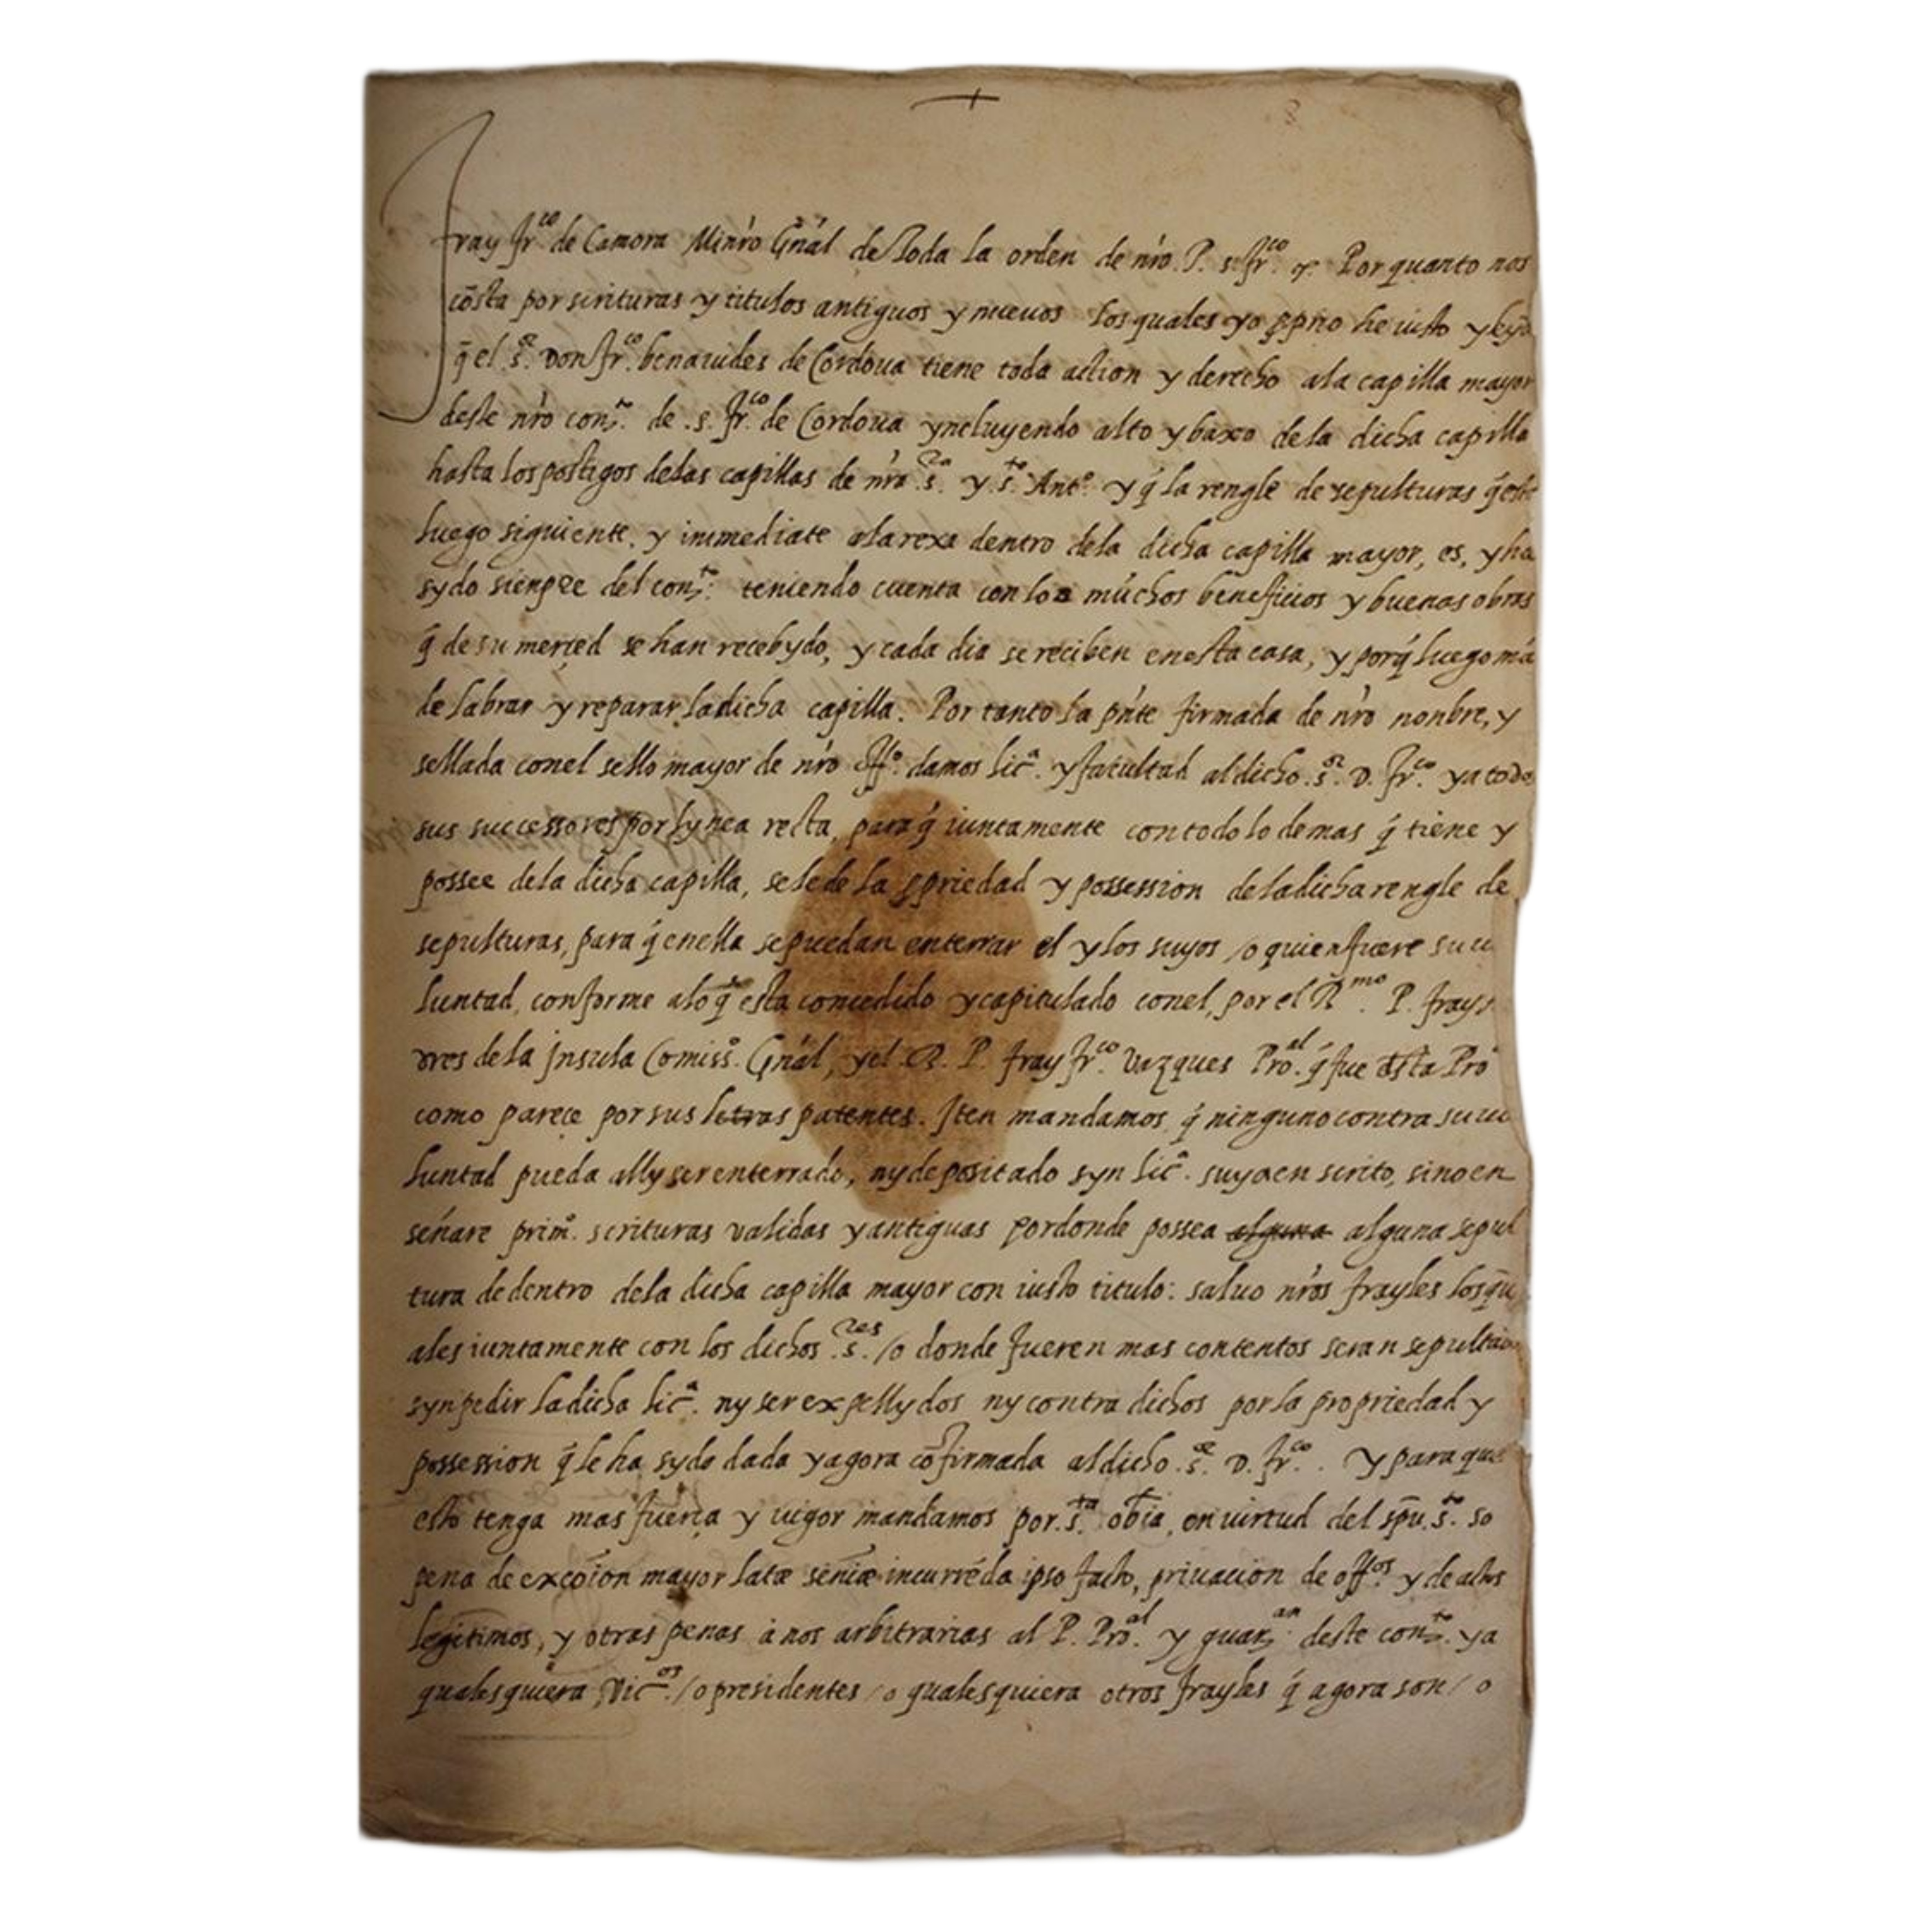 +
fray fr.co de Camora Minr̃o Gñal de toda la orden de nr̃o. P. s. fr.co &. Por quanto nos
cõsta por scrituras y titulos antiguos y nueuos los quales yo ꝓprio he uisto y leydo
q̃ el .s.or Don fr.co benauides de Cordoua tiene toda action y derecho ala capilla mayor
deste nr̃o con.to de .s. fr.co de Cordoua yncluyendo alto y baxo dela dicha capilla
hasta los postigos delas capillas de nr̃a .s.ra y .s.to Ant.o y q̃ la rengle de sepulturas q̃ esta
luego siguiente, y immediate ala rexa dentro dela dicha capilla mayor, es, y ha
sydo sienpre del con.to teniendo cuenta con los múchos beneficios y buenas obras
q̃ de su merçed se han recebydo, y cada dia se reciben enesta casa, y porq̃ luego
de labrar y reparar ladicha capilla. Por tanto la pñte firmada de nr̃o nonbre, y
sellada conel sello mayor de nr̃o off.o damos lic.a y facultad al dicho .s.or D. fr.co ya todos
sus successores por lynea recta, para q̃ iuntamente con todo lo demas q̃ tiene y
possee dela dicha capilla, sele de la ꝓpriedad y possession deladicha rengle de
sepulturas, para q̃ enella se puedan enterrar el y los suyos /o quien fuere su uo
luntad, conforme alo q̃ esta concedido y capitulado conel, por el R.mo P. fray
dres dela jnsula Comiss.o Gñal, y el R. P. fray fr.co Vazques Pro.al q̃ fue desta Pro.a
como pareçe por sus letras patentes. Iten mandamos q̃ ninguno contra su uo
luntad pueda ally ser enterrado, ny depositado syn lic.a suya en scrito, sino en
señare prim.o scrituras validas y antiguas por donde possea alguna alguna sepul
tura de dentro dela dicha capilla mayor con iusto titulo: saluo nr̃os frayles los qu
ales iuntamente con los dichos .s.res /o donde fueren mas contentos seran sepultados
syn pedir ladicha lic.a ny ser expellydos ny contradichos por la propriedad y
possession q̃ le ha sydo dada y agora cõfirmada al dicho .s.or D. fr.co . Y para que
esto tenga mas fuerça y uigor mandamos por .s.ta obĩa, en uirtud del spũ .s.to so
pena de excõion mayor latæ senĩæ incurrẽda ipso facto, priuacion de off.os y de actos
legitimos, y otras penas à nos arbitrarias al P. Pro.al y guar.an deste con.to ya
qualesquiera Vic.os /o presidentes /o qualesquiera otros frayles q̃ agora son / o